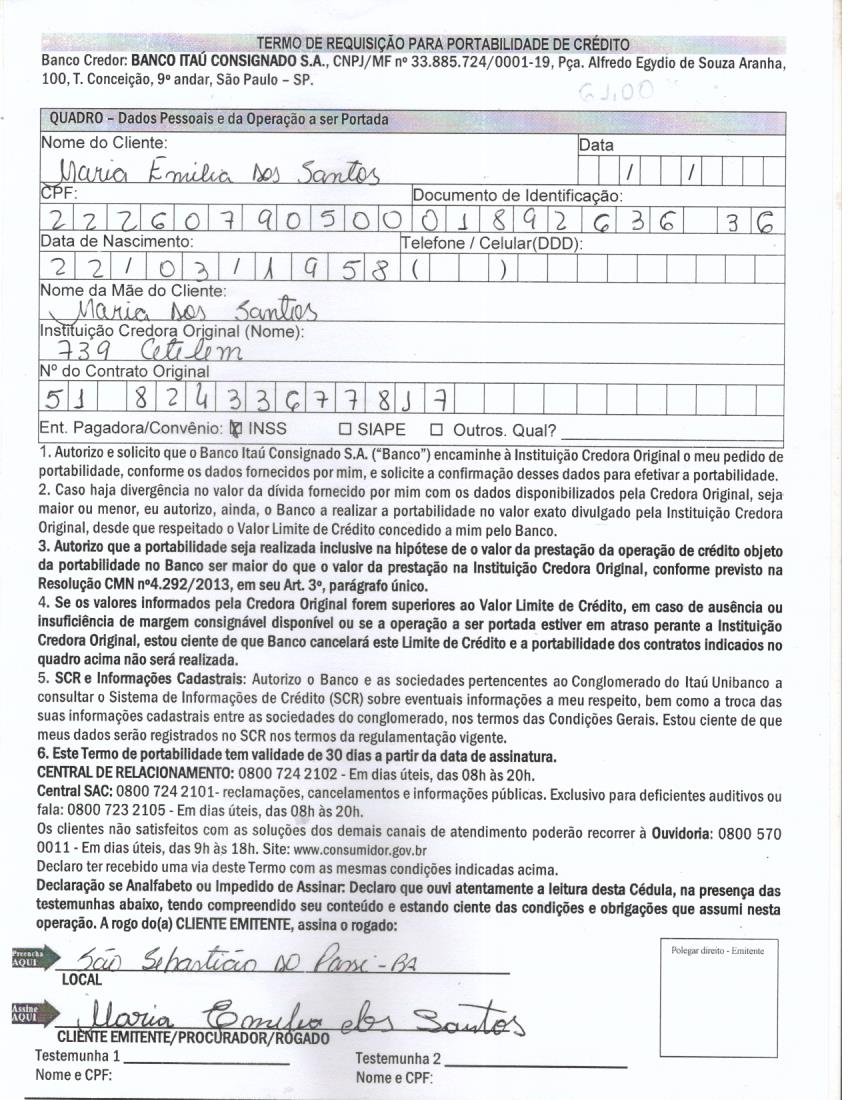 TERMO DE REQUISIÇÃO PARA PORTABILIDADE DE CRÉDITO
Banco Credor: BANCO ITAÚ CONSIGNADO S.A., CNPJ/MF nº 33.885.724/0001-19, Pça. Alfredo Egydio de Souza Aranha,
100, T. Conceição, 9º andar, São Paulo – SP.
61,00
QUADRO – Dados Pessoais e da Operação a ser Portada
Nome do Cliente: Data
Maria Emilia dos Santos / /
CPF: Documento de Identificação:
22260790500 01892636 36
Data de Nascimento: Telefone / Celular(DDD):
22/03/1958 ( )
Nome da Mãe do Cliente:
Maria dos Santos
Instituição Credora Original (Nome):
739 Cetelem
Nº do Contrato Original
51 82433677817
Ent. Pagadora/Convênio: ☒ INSS ☐ SIAPE ☐ Outros. Qual?
1. Autorizo e solicito que o Banco Itaú Consignado S.A. (“Banco”) encaminhe à Instituição Credora Original o meu pedido de
portabilidade, conforme os dados fornecidos por mim, e solicite a confirmação desses dados para efetivar a portabilidade.
2. Caso haja divergência no valor da dívida fornecido por mim com os dados disponibilizados pela Credora Original, seja
maior ou menor, eu autorizo, ainda, o Banco a realizar a portabilidade no valor exato divulgado pela Instituição Credora
Original, desde que respeitado o Valor Limite de Crédito concedido a mim pelo Banco.
3. Autorizo que a portabilidade seja realizada inclusive na hipótese de o valor da prestação da operação de crédito objeto
da portabilidade no Banco ser maior do que o valor da prestação na Instituição Credora Original, conforme previsto na
Resolução CMN nº4.292/2013, em seu Art. 3º, parágrafo único.
4. Se os valores informados pela Credora Original forem superiores ao Valor Limite de Crédito, em caso de ausência ou
insuficiência de margem consignável disponível ou se a operação a ser portada estiver em atraso perante a Instituição
Credora Original, estou ciente de que Banco cancelará este Limite de Crédito e a portabilidade dos contratos indicados no
quadro acima não será realizada.
5. SCR e Informações Cadastrais: Autorizo o Banco e as sociedades pertencentes ao Conglomerado do Itaú Unibanco a
consultar o Sistema de Informações de Crédito (SCR) sobre eventuais informações a meu respeito, bem como a troca das
suas informações cadastrais entre as sociedades do conglomerado, nos termos das Condições Gerais. Estou ciente de que
meus dados serão registrados no SCR nos termos da regulamentação vigente.
6. Este Termo de portabilidade tem validade de 30 dias a partir da data de assinatura.
CENTRAL DE RELACIONAMENTO: 0800 724 2102 - Em dias úteis, das 08h às 20h.
Central SAC: 0800 724 2101- reclamações, cancelamentos e informações públicas. Exclusivo para deficientes auditivos ou
fala: 0800 723 2105 - Em dias úteis, das 08h às 20h.
Os clientes não satisfeitos com as soluções dos demais canais de atendimento poderão recorrer à Ouvidoria: 0800 570
0011 - Em dias úteis, das 9h às 18h. Site: www.consumidor.gov.br
Declaro ter recebido uma via deste Termo com as mesmas condições indicadas acima.
Declaração se Analfabeto ou Impedido de Assinar: Declaro que ouvi atentamente a leitura desta Cédula, na presença das
testemunhas abaixo, tendo compreendido seu conteúdo e estando ciente das condições e obrigações que assumi nesta
operação. A rogo do(a) CLIENTE EMITENTE, assina o rogado:
Polegar direito - Emitente
Preencha AQUI São Sebastião do Passé - BA
LOCAL
Assine AQUI Maria Emilia dos Santos
CLIENTE EMITENTE/PROCURADOR/ROGADO
Testemunha 1 Testemunha 2
Nome e CPF: Nome e CPF: